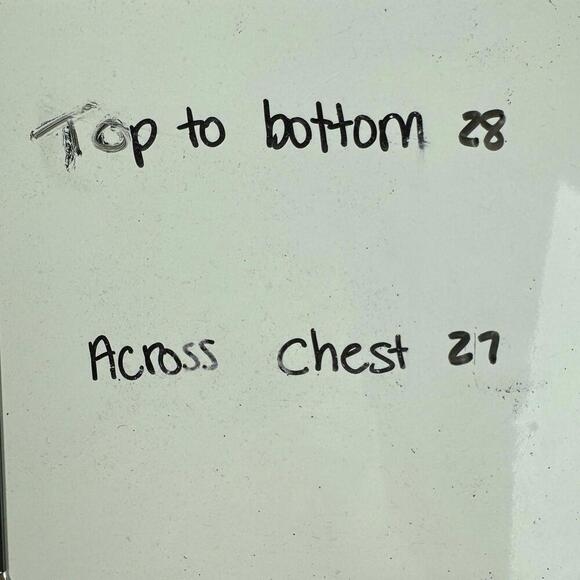 Top to bottom 28
Across Chest 27